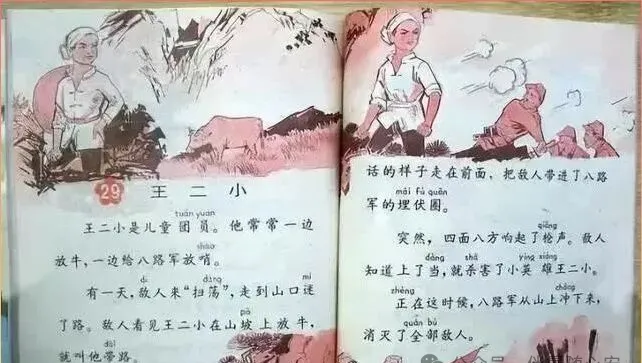 29 王二小
tuán yuán
王二小是儿童团员。他常常一边
shào
放牛,一边给八路军放哨。
dí dàng mí
有一天,敌人来“扫荡”,走到山口迷
pō
了路。敌人看见王二小在山坡上放牛,
就叫他带路。
话的样子走在前面,把敌人带进了八路
mái fú quān
军的埋伏圈。
qiāng
突然,四面八方响起了枪声。敌人
dàng shā yīng xióng
知道上了当,就杀害了小英雄王二小。
zhèng chōng
正在这时候,八路军从山上冲下来,
quán bù
消灭了全部敌人。